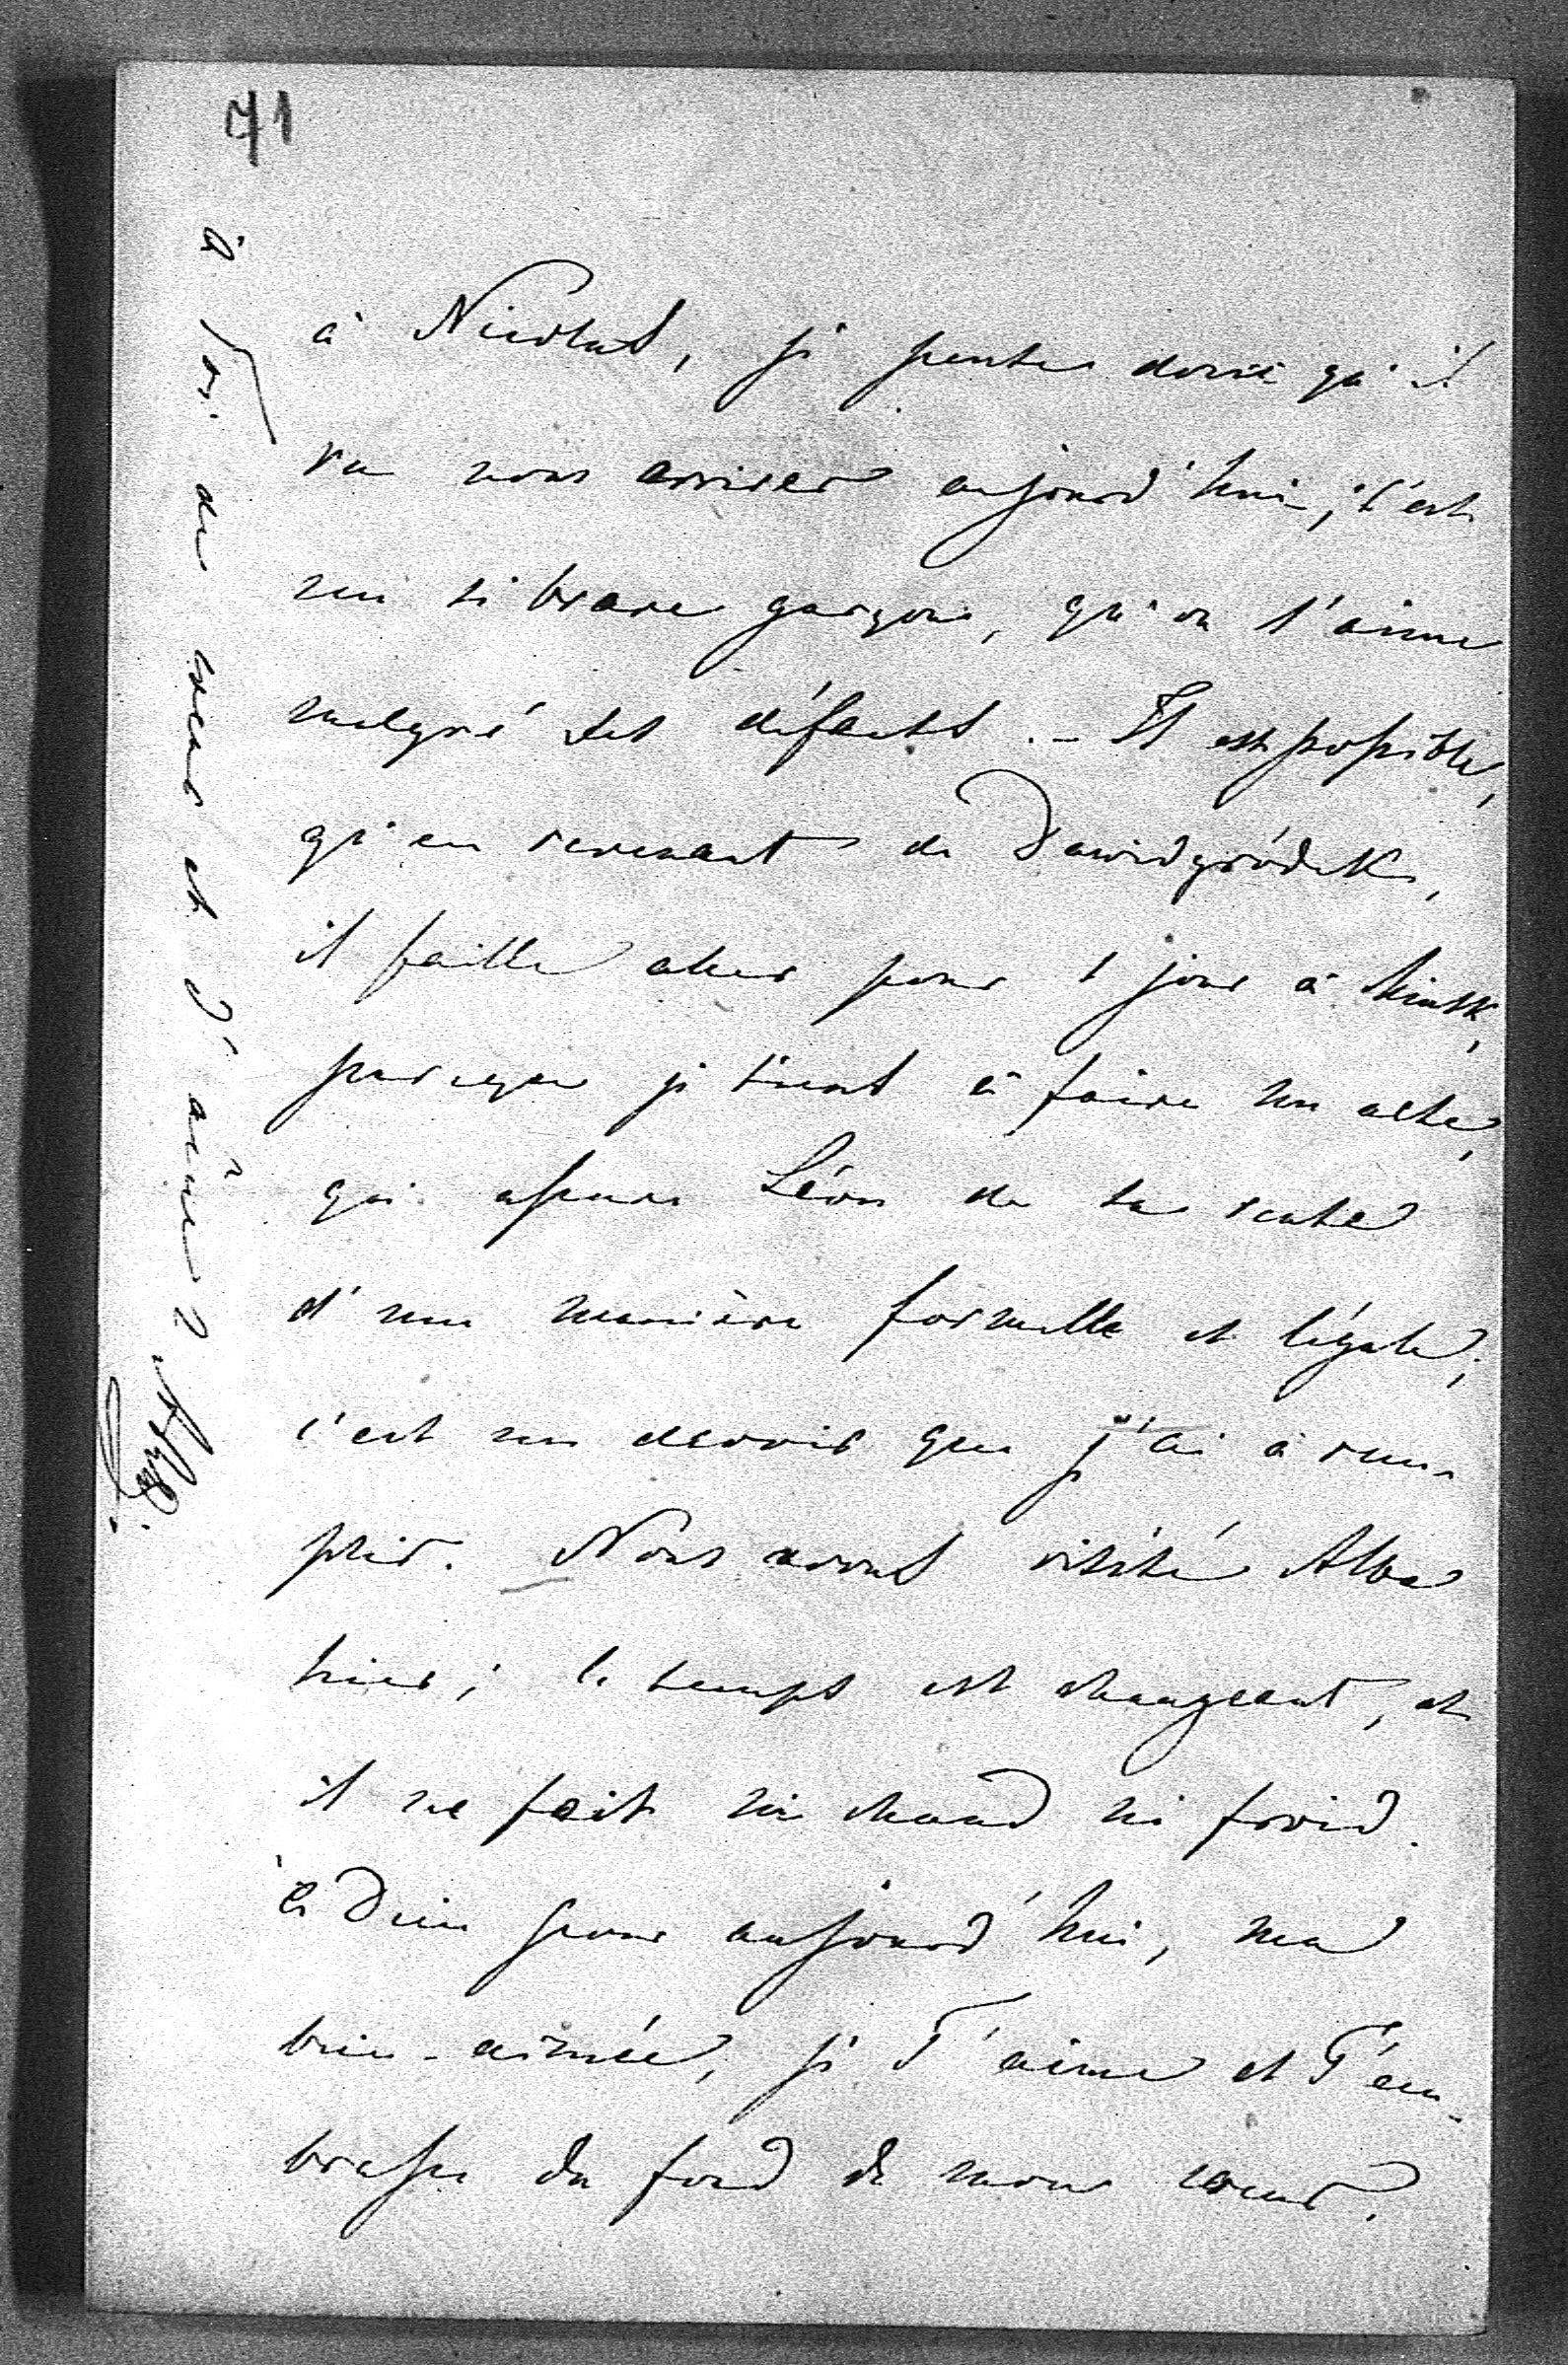 71
à Nicolas, je pense donc qu'il
va nous arriver aujourd'hui; c'est
un si brave garçon, qu'on l'aime
malgré ses défauts. - Il est possible,
qu'en revenant de Dawidgródek,
il faille aller pour 1 jour à Minsk,
parceque je tiens à faire un acte,
qui assure Léon de sa rente
d'une manière formelle et légale;
c'est un devoir que j'ai à rem-
plir. Nous avons visité Alba
hier; le temps est changeant, et
il ne fait ni chaud ni froid.
à Dieu pour aujourd'hui, ma
bien-aimée, je T'aime et T'em-
brasse du fond de mon cœur.
à Toi de cœur et d'âme